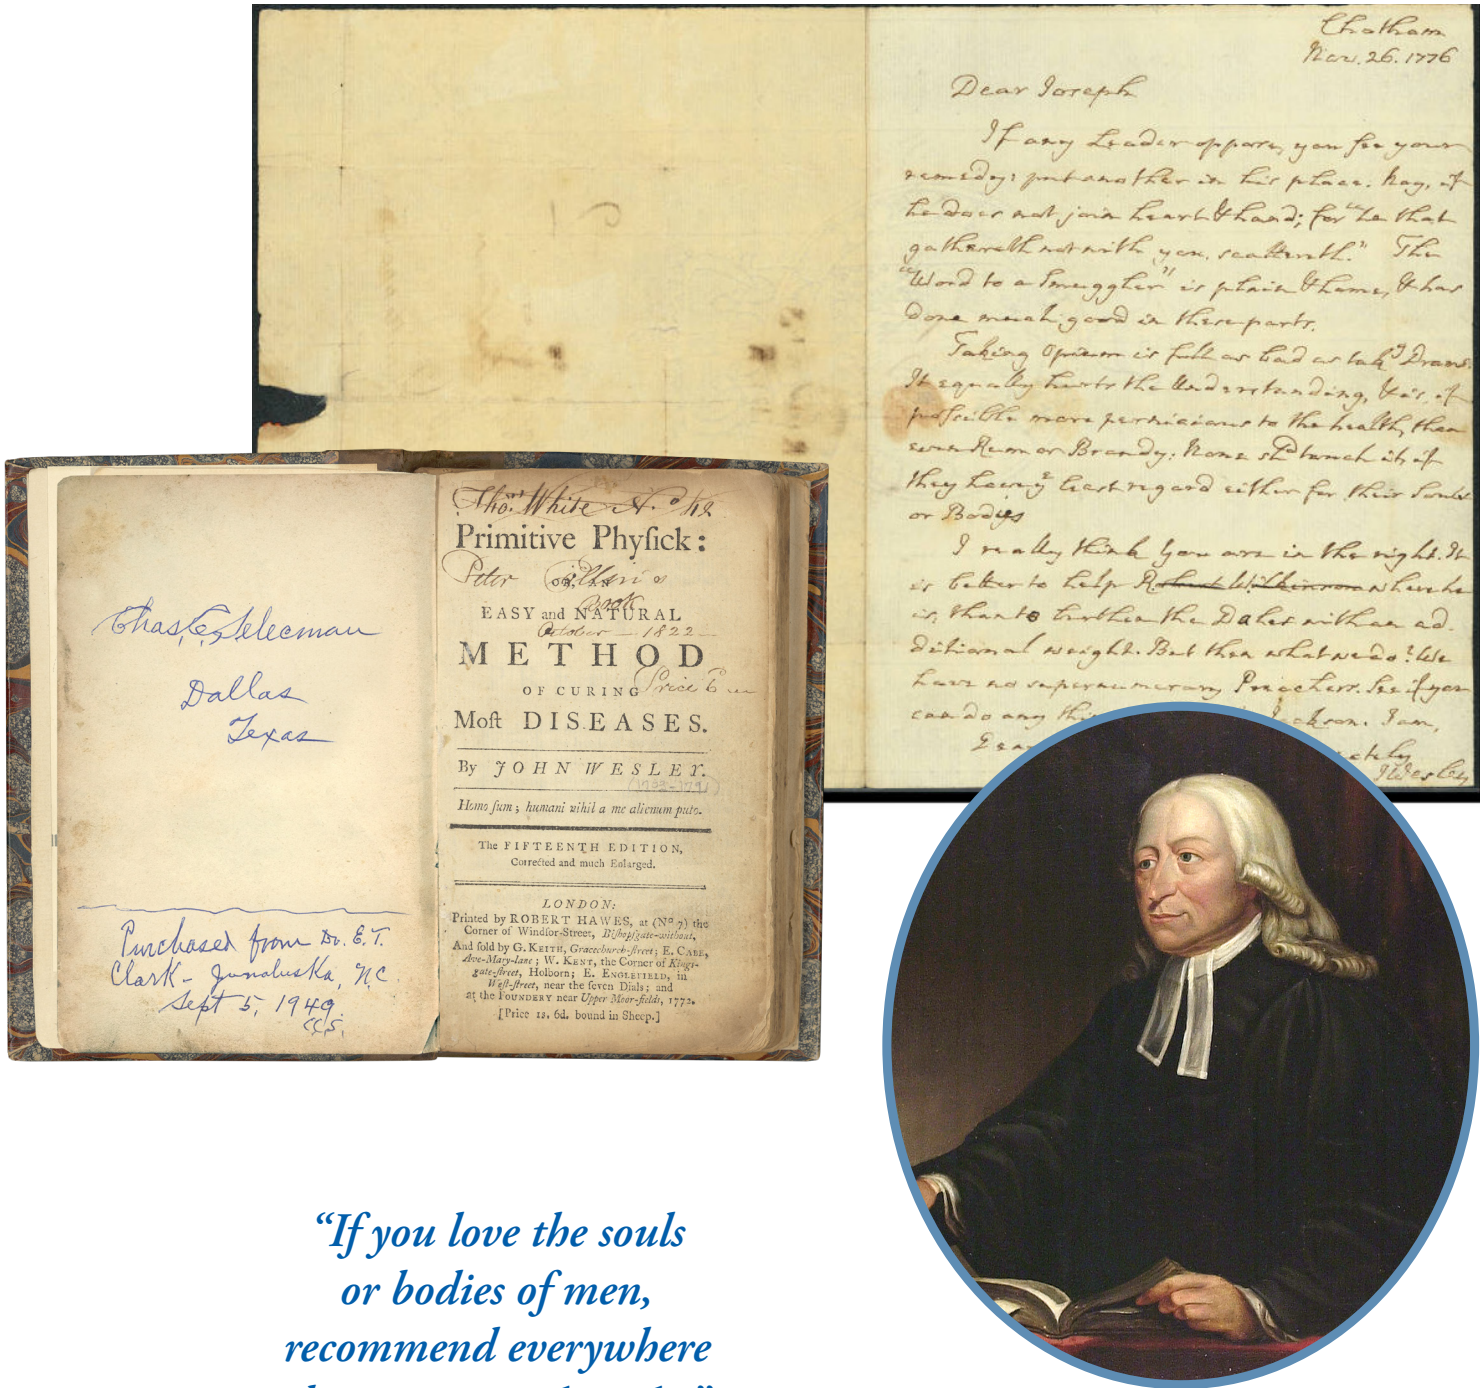 Chatham
Nov. 26. 1776
Dear Joseph
If any Leader oppose, you see your
remedy: put another in his place. Nay, if
he does not join heart & hand; for "he that
gathereth not with you, scattereth." The
"Word to a Smuggler" is plain & home, & has
done much good in these parts.
Taking Opium is full as bad as takg Drams.
It equally hurts the Understanding, & is, if
possible more pernicious to the health, than
even Rum or Brandy: None shd touch it if
they have ye least regard either for their Souls
or Bodies
I really think you are in the right. It
is better to help Robert Wilkinson where he
is, than to burthen the Dales with an ad-
ditional weight. But then what we do? We
have no supernumerary Preachers. See if you
can do any Jackson. I am,
JWesley
Chas. C. Selecman
Dallas
Texas
Purchased from Dr. E.T.
Clark - Junaluska, NC
Sept 5, 1949.
CCS.
Thos. White No 42
Primitive Phyſick:
Peter
OR, AN
Book
EASY and NATURAL
October - 1822
METHOD
OF CURING Price 6
Moſt DISEASES.
By JOHN WESLEY.
(1703-1791)
Homo ſum; humani nihil a me alienum puto.
The FIFTEENTH EDITION,
Corrected and much Enlarged.
LONDON:
Printed by ROBERT HAWES, at (No 7) the
Corner of Windſor-Street, Biſhopſgate-without,
And ſold by G. KEITH, Gracechurch-ſtreet; E. CABE,
Ave-Mary-lane; W. KENT, the Corner of Kings-
gate-ſtreet, Holborn; E. ENGLEFIELD, in
Weſt-ſtreet, near the ſeven Dials; and
at the FOUNDERY near Upper Moor-fields, 1772.
[Price 1s. 6d. bound in Sheep.]
“If you love the souls
or bodies of men,
recommend everywhere